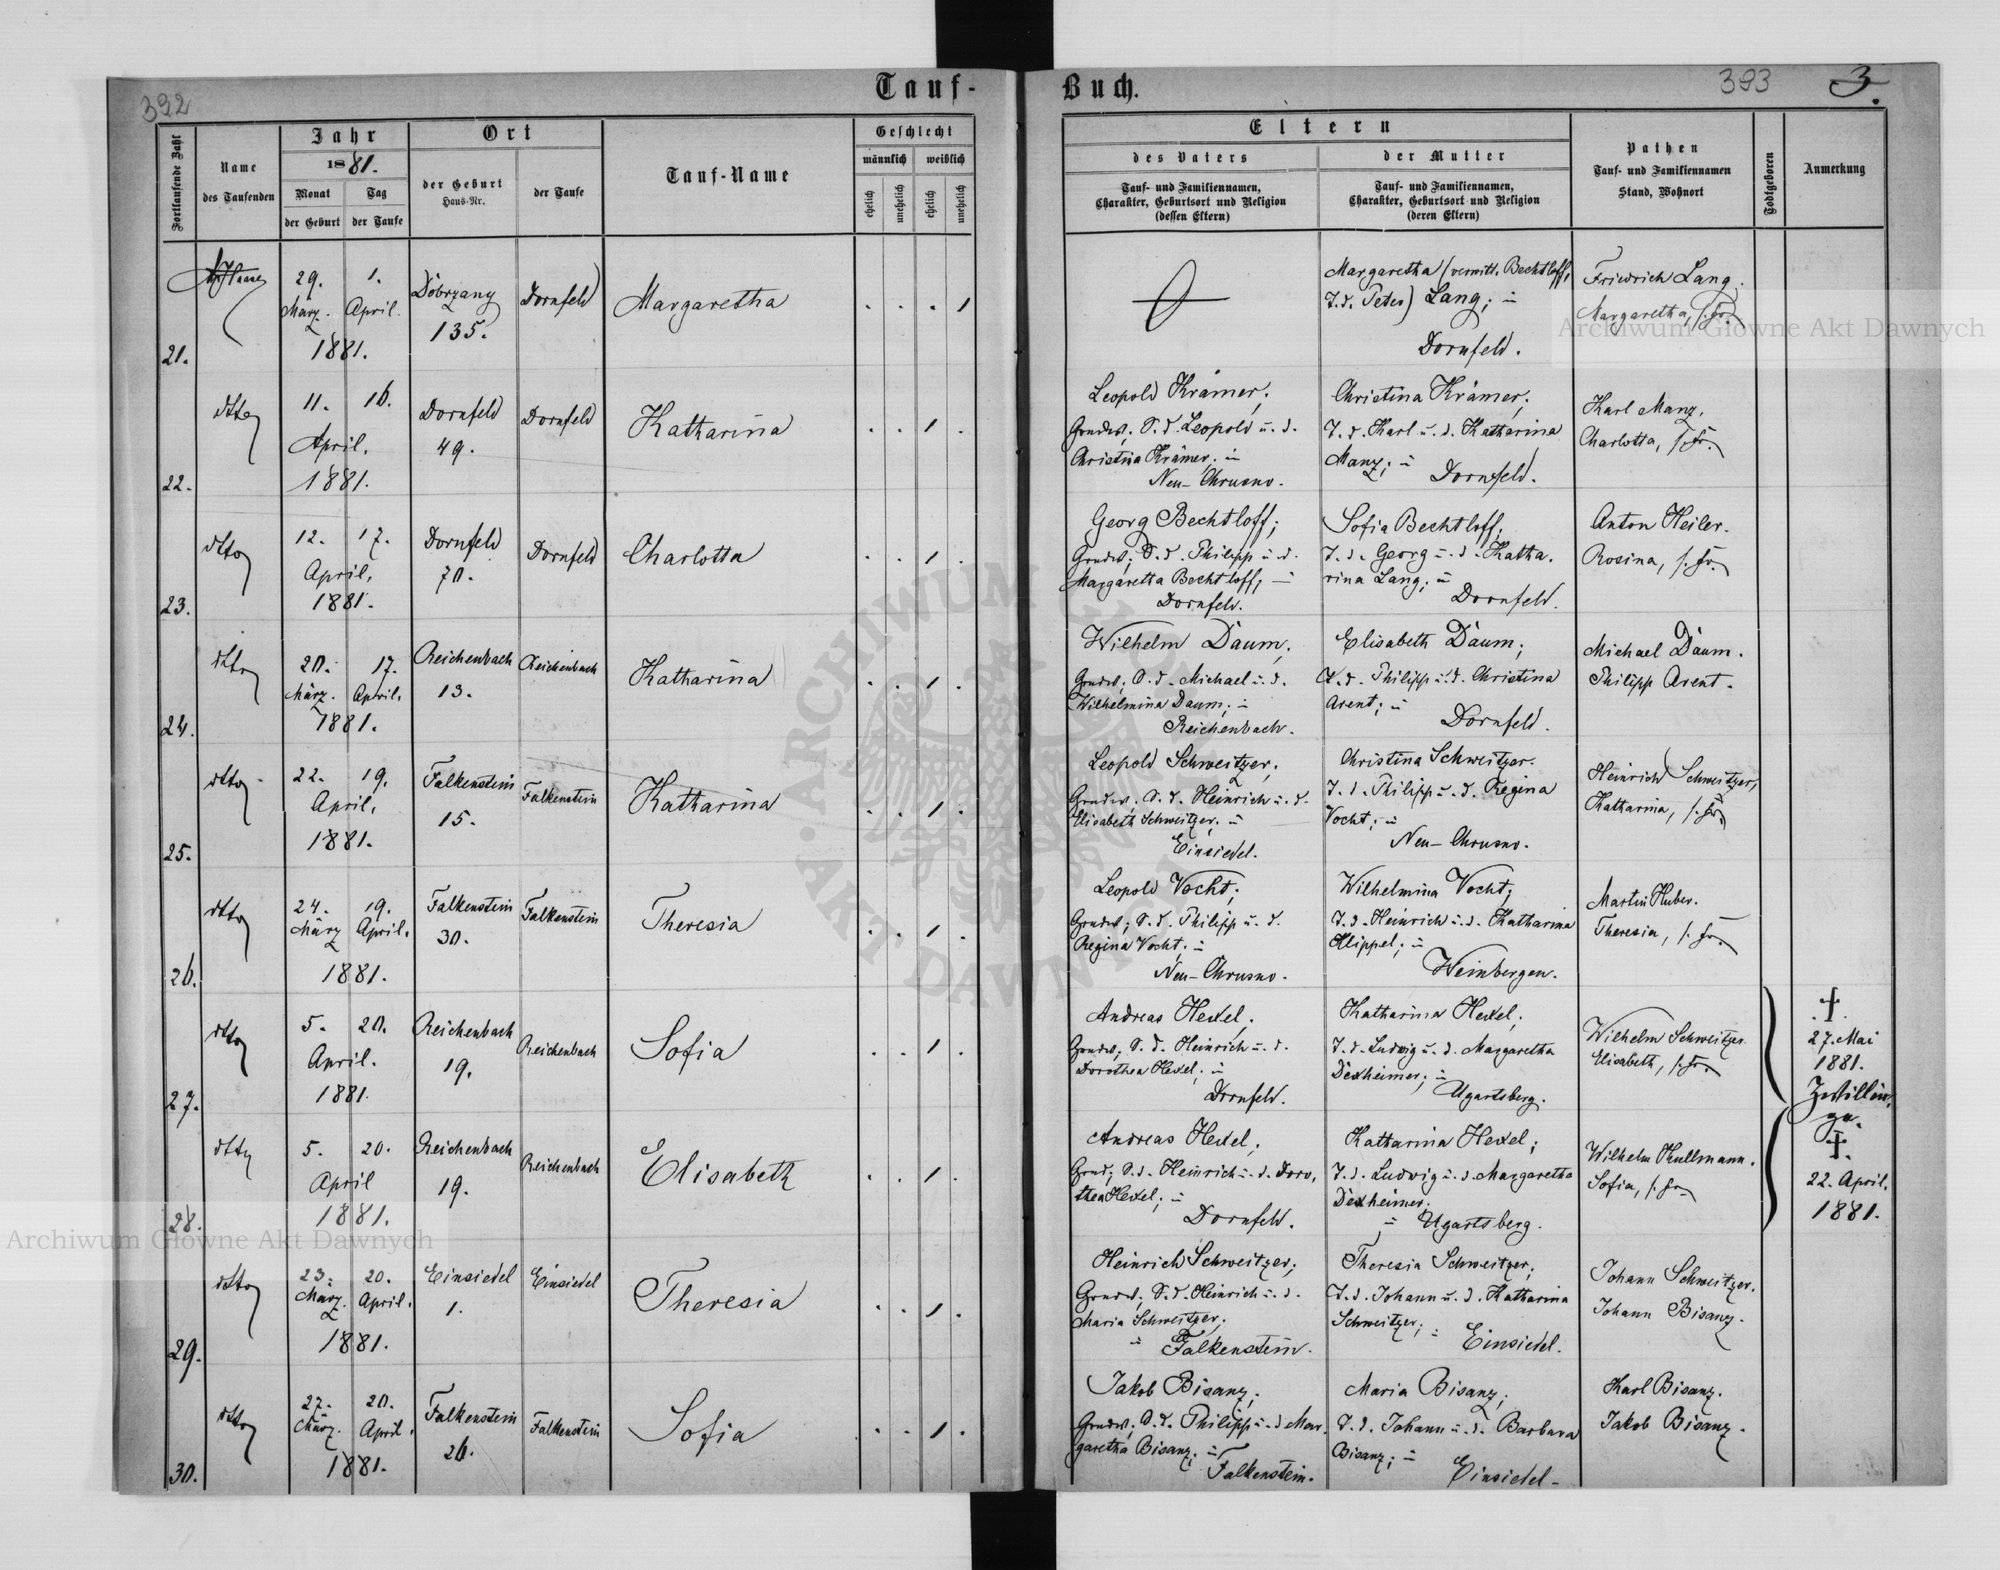 392
Tauf-
Buch.
393
3.
Fortlaufende Zahl
Name
des Taufenden
Jahr
1881.
Monat
der Geburt
Tag
der Taufe
Ort
der Geburt
Haus-Nr.
der Taufe
Tauf-Name
Geschlecht
männlich
weiblich
ehelich
unehelich
ehelich
unehelich
Eltern
des Vaters
Tauf- und Familiennamen,
Charakter, Geburtsort und Religion
(dessen Eltern)
der Mutter
Tauf- und Familiennamen,
Charakter, Geburtsort und Religion
(deren Eltern)
Pathen
Tauf- und Familiennamen
Stand, Wohnort
Todtgeboren
Anmerkung
21.
29. 1.
März. April.
1881.
Dobrzany
135.
Dornfeld
Margaretha
. . . 1
Margaretha (verwitt. Bechtloff,
T. d. Peter) Lang; in
Dornfeld.
Friedrich Lang.
Margaretha, s. Fr.
22.
dtto
11. 16.
April.
1881.
Dornfeld
49.
Dornfeld
Katharina
. . 1 .
Leopold Krämer;
Grundw; S. d. Leopold u. d.
Christina Krämer. in
Neu-Chrusno.
Christina Krämer;
T. d. Karl u. d. Katharina
Manz; in Dornfeld.
Karl Manz.
Charlotta, s. Fr.
23.
dtto
12. 17.
April.
1881.
Dornfeld
70.
Dornfeld
Charlotta
. . 1 .
Georg Bechtloff;
Grundw; S. d. Philipp u. d.
Margaretha Bechtloff; in
Dornfeld.
Sofia Bechtloff;
T. d. Georg u. d. Katha-
rina Lang; in
Dornfeld.
Anton Heiler.
Rosina, s. Fr.
24.
dtto
20. 17.
März. April.
1881.
Reichenbach
13.
Reichenbach
Katharina
. . 1 .
Wilhelm Daum;
Grundw; S. d. Michael u. d.
Wilhelmina Daum; in
Reichenbach.
Elisabeth Daum;
T. d. Philipp u. d. Christina
Arent; in
Dornfeld.
Michael Daum.
Philipp Arent.
25.
dtto
22. 19.
April.
1881.
Falkenstein
15.
Falkenstein
Katharina
. . 1 .
Leopold Schweitzer;
Grundw; S. d. Heinrich u. d.
Elisabeth Schweitzer; in
Einsiedel.
Christina Schweitzer.
T. d. Philipp u. d. Regina
Vocht; in
Neu-Chrusno.
Heinrich Schweitzer,
Katharina, s. Fr.
26.
dtto
24. 19.
März April.
1881.
Falkenstein
30.
Falkenstein
Theresia
. . 1 .
Leopold Vocht;
Grundw; S. d. Philipp u. d.
Regina Vocht; in
Neu-Chrusno.
Wilhelmina Vocht;
T. d. Heinrich u. d. Katharina
Klippel; in
Weinbergen.
Martin Huber.
Theresia, s. Fr.
27.
dtto
5. 20.
April.
1881.
Reichenbach
19.
Reichenbach
Sofia
. . 1 .
Andreas Hexel;
Grundw; S. d. Heinrich u. d.
Dorothea Hexel; in
Dornfeld.
Katharina Hexel;
T. d. Ludwig u. d. Margaretha
Dexheimer; in
Ugartsberg.
Wilhelm Schweitzer
Elisabeth, s. Fr.
†
27. Mai
1881.
Zwillin-
ge.
28.
dtto
5. 20.
April
1881.
Reichenbach
19.
Reichenbach
Elisabeth
. . 1 .
Andreas Hexel;
Grund; S. d. Heinrich u. d. Doro-
thea Hexel; in
Dornfeld.
Katharina Hexel;
T. d. Ludwig u. d. Margaretha
Dexheimer,
in Ugartsberg.
Wilhelm Kullmann.
Sofia, s. Fr.
†
22. April.
1881.
29.
dtto
23. 20.
März. April.
1881.
Einsiedel
1.
Einsiedel
Theresia
. . 1 .
Heinrich Schweitzer;
Grundw; S. d. Heinrich u. d.
Maria Schweitzer;
in Falkenstein.
Theresia Schweitzer;
T. d. Johann u. d. Katharina
Schweitzer; in Einsiedel.
Johann Schweitzer.
Johann Bisanz.
30.
dtto
27. 20.
März. April.
1881.
Falkenstein
26.
Falkenstein
Sofia
. . 1 .
Jakob Bisanz;
Grundw; S. d. Philipp u. d. Mar-
garetha Bisanz; in
Falkenstein.
Maria Bisanz;
T. d. Johann u. d. Barbara
Bisanz; in
Einsiedel-
Karl Bisanz.
Jakob Bisanz.
Archiwum Główne Akt Dawnych
Archiwum Główne Akt Dawnych